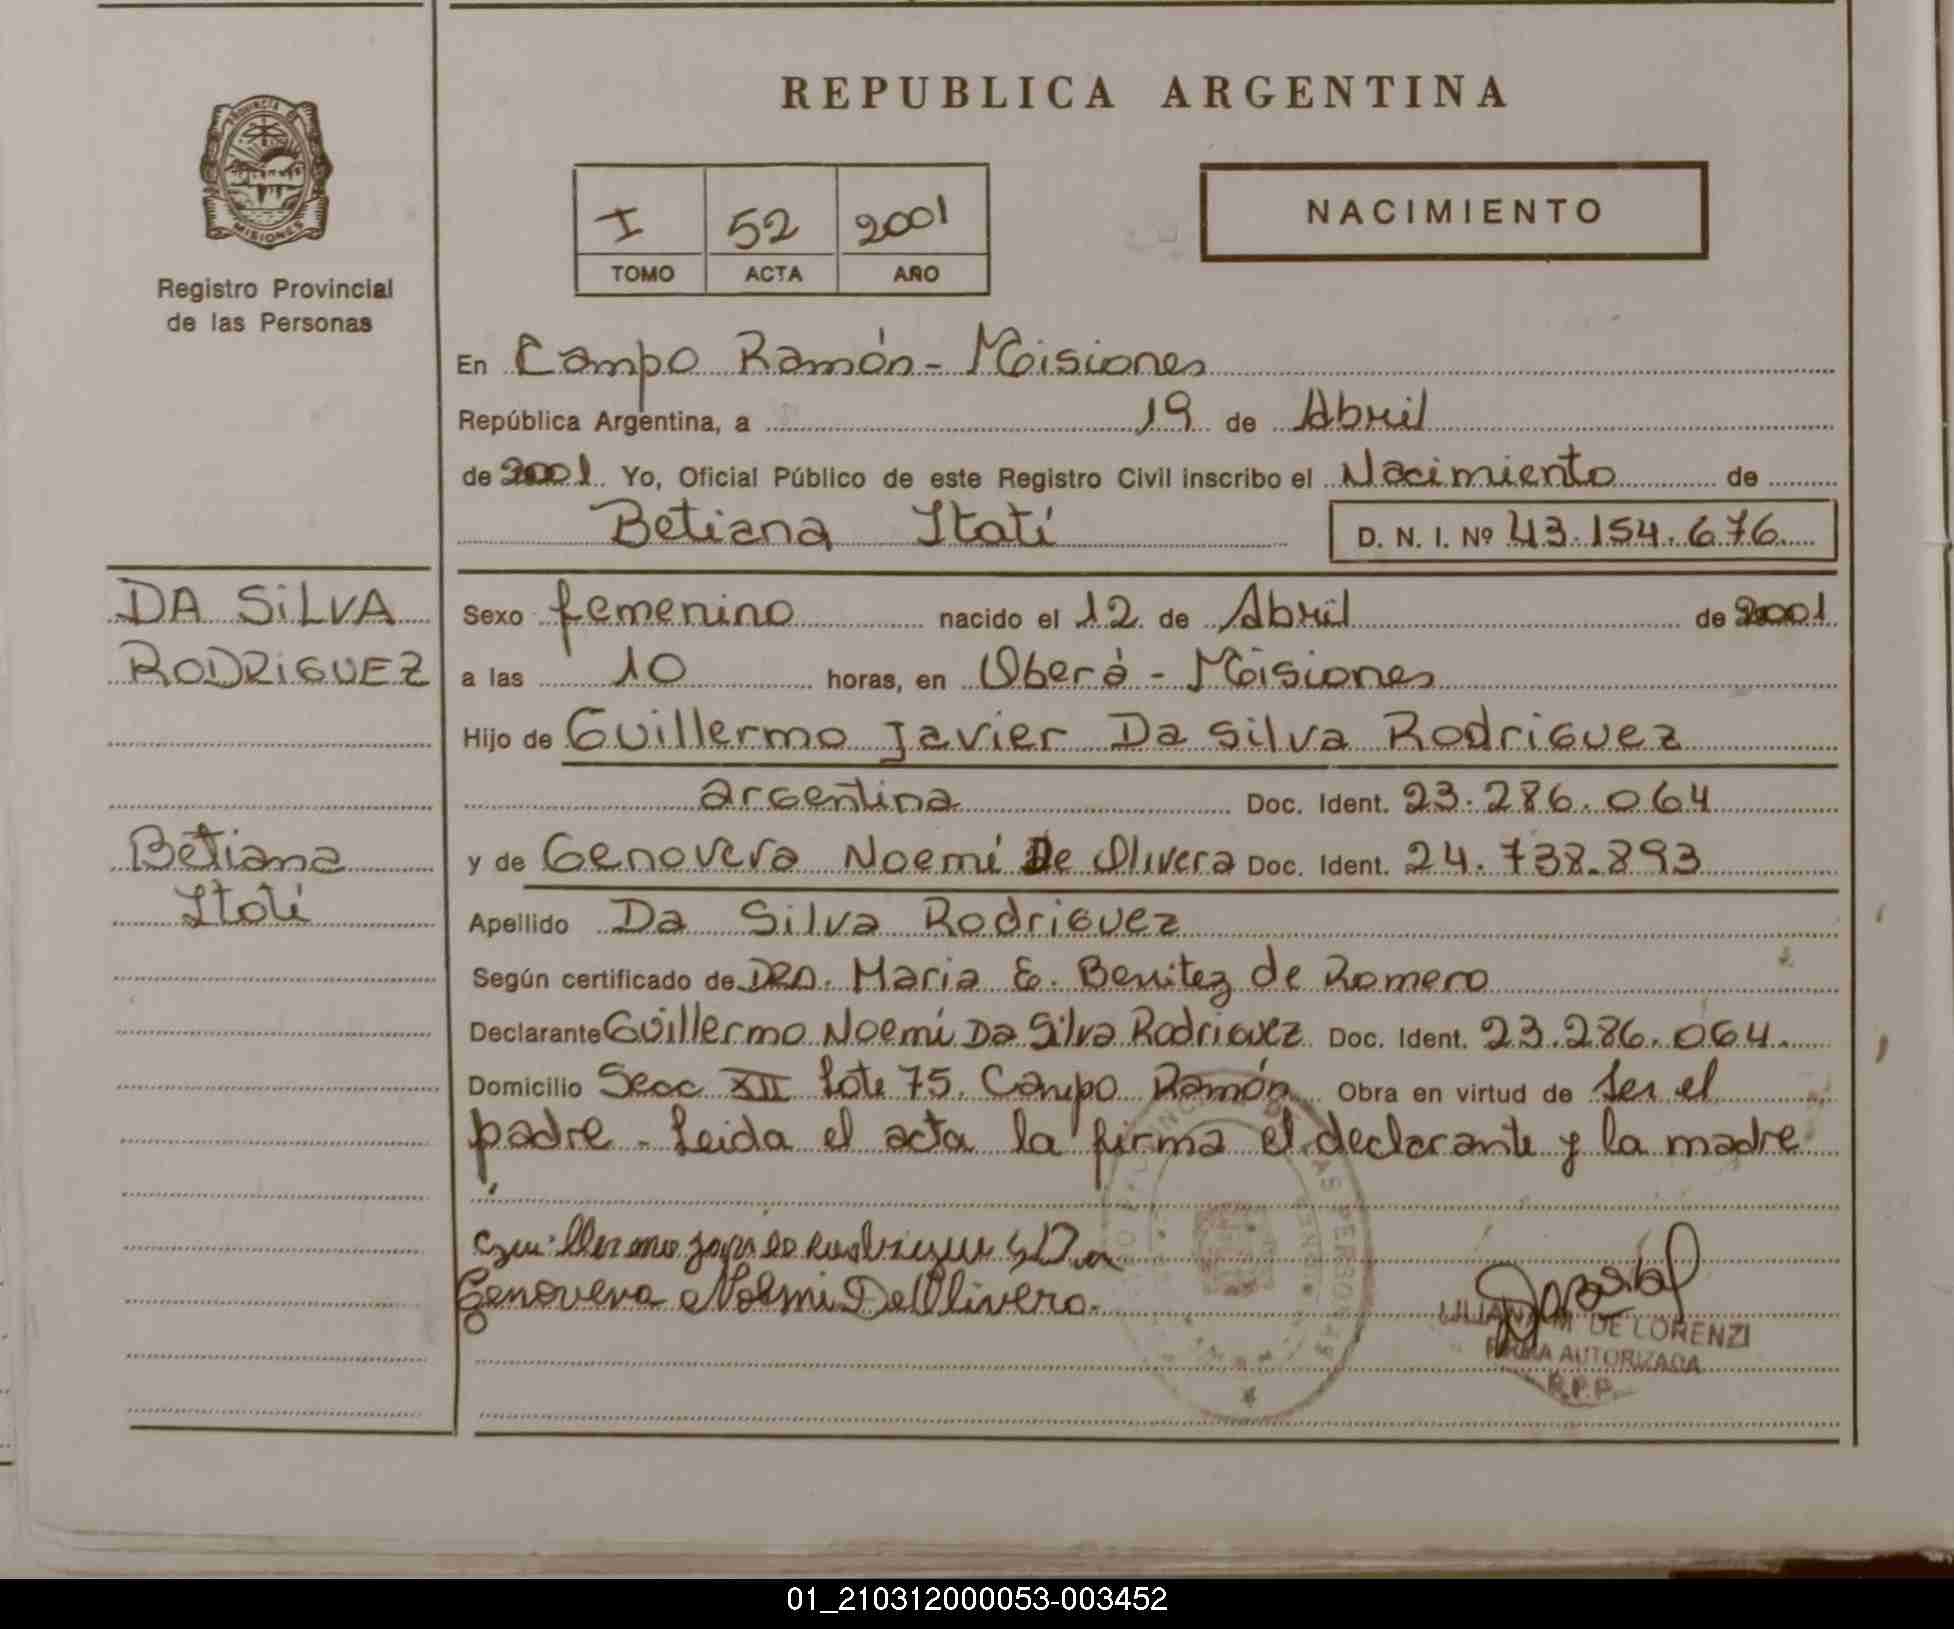 REPUBLICA ARGENTINA
PROVINCIA DE
MISIONES
Registro Provincial
de las Personas
I 52 2001
TOMO ACTA AÑO
NACIMIENTO
En Campo Ramón - Misiones
República Argentina, a 19 de Abril
de 2001. Yo, Oficial Público de este Registro Civil inscribo el Nacimiento de
Betiana Itatí D. N. I. Nº 43.154.676
DA SiLVA
RODRiGUEZ
Betiana
Itatí
Sexo femenino nacido el 12 de Abril de 2001
a las 10 horas, en Oberá - Misiones
Hijo de Guillermo Javier Da Silva Rodriguez
argentina Doc. Ident. 23.286.064
y de Genoveva Noemí De Olivera Doc. Ident. 24.738.893
Apellido Da Silva Rodriguez
Según certificado de Dra. Maria E. Benitez de Romero
Declarante Guillermo Noemí Da Silva Rodriguez Doc. Ident. 23.286.064
Domicilio Secc XII Lote 75. Campo Ramón Obra en virtud de ser el
padre. Leida el acta la firma el declarante y la madre
Genoveva Noemi De Olivera.
LILIANA M. DE LORENZI
FIRMA AUTORIZADA
R.P.P.
01_210312000053-003452